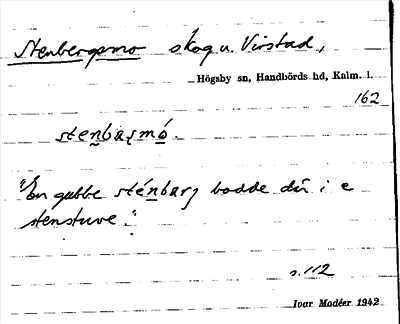 Stenbergsmo skog u. Virstad,
Högsby sn, Handbörds hd, Kalm. l.
162
stenbaṣmó.
"En gubbe sténbarj bodde där i e
stenstuve."
s. 112
Ivar Modéer 1942